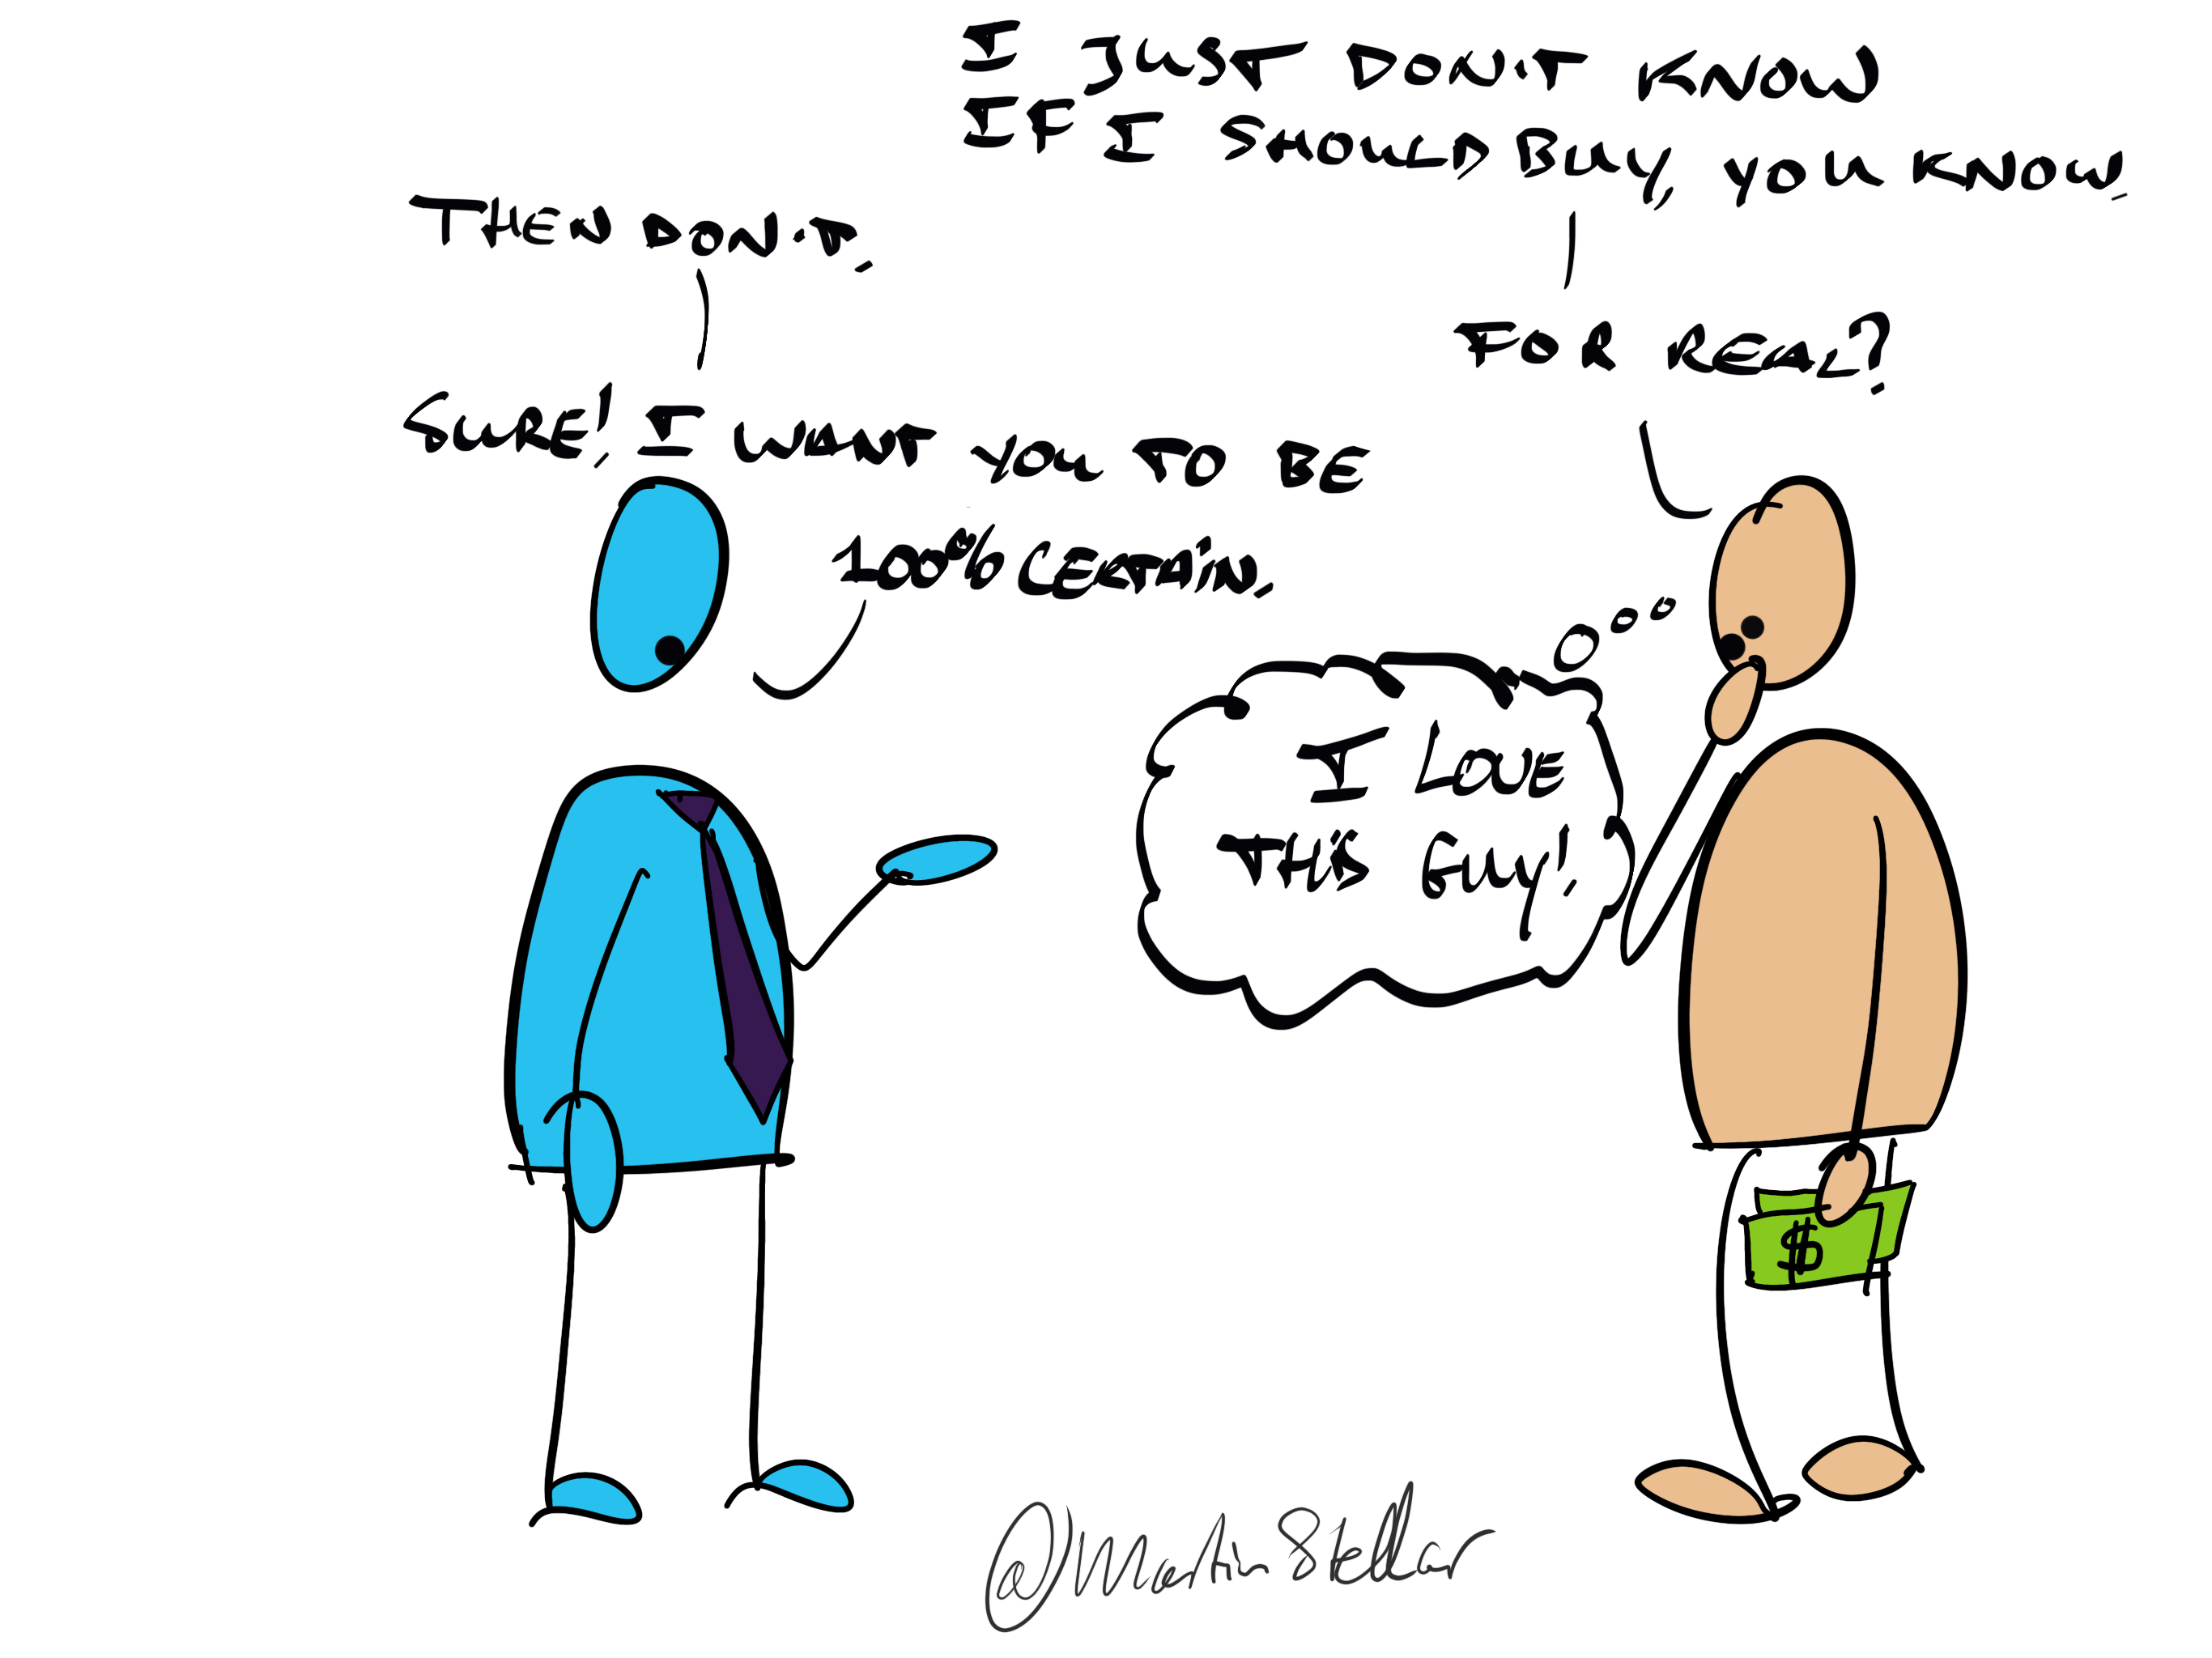 I JUST DON'T KNOW
IF I SHOULD BUY, YOU KNOW.
THEN DON'T.
FOR REAL?
SURE! I WANT YOU TO BE
100% CERTAIN.
I LOVE
THIS GUY!
$
@MartinStellar